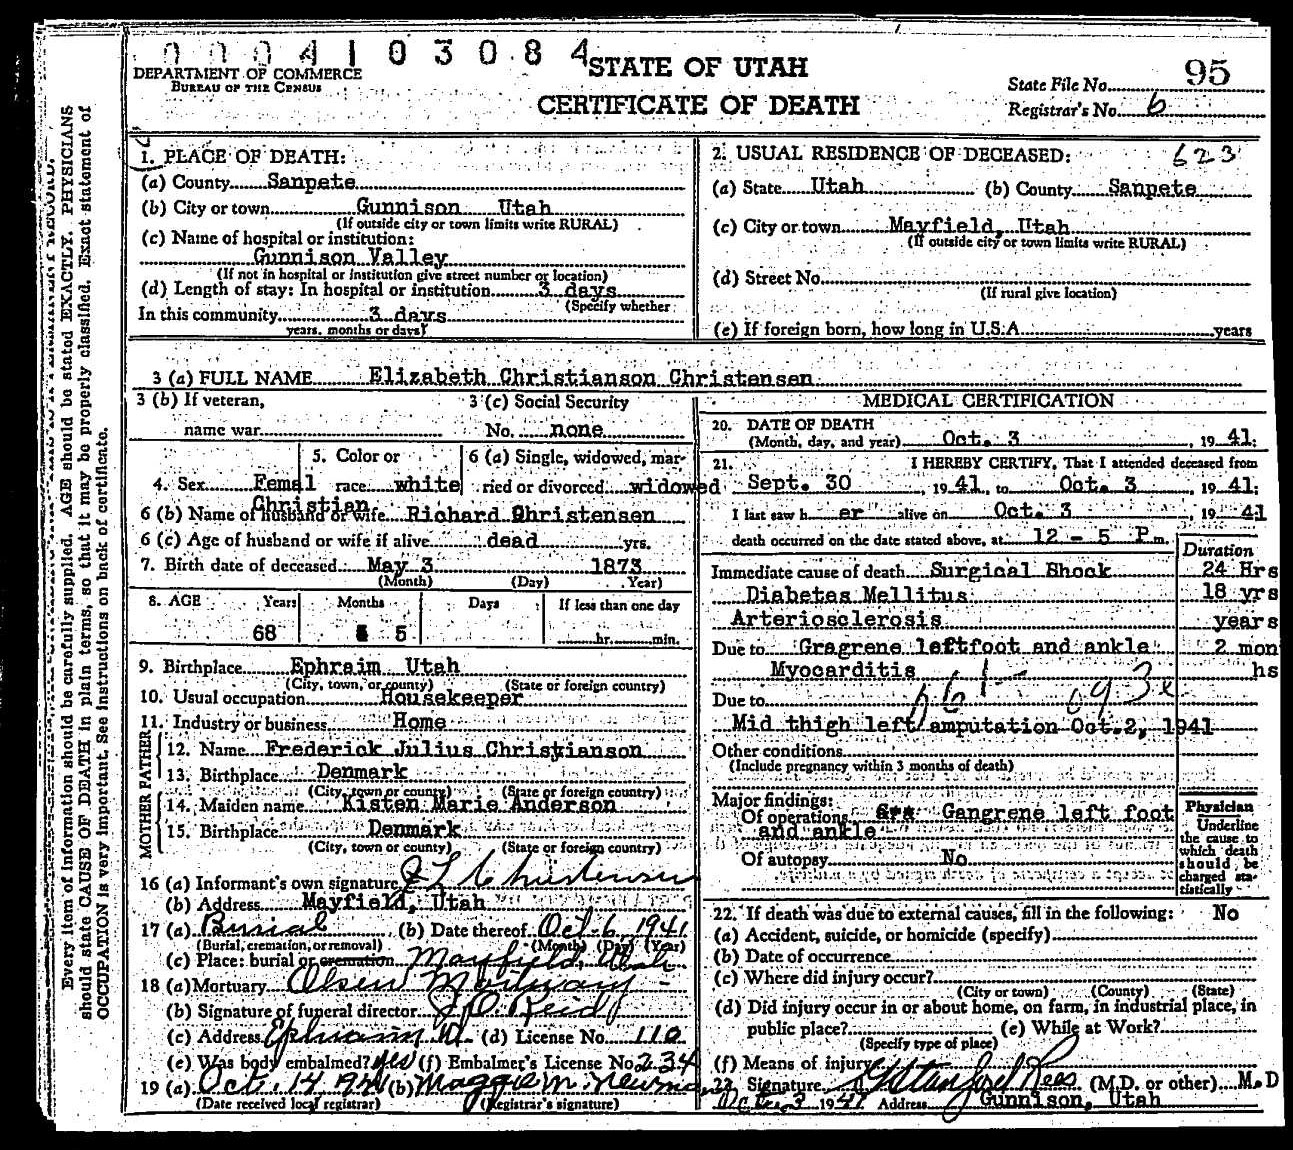 0004103084
DEPARTMENT OF COMMERCE
BUREAU OF THE CENSUS
STATE OF UTAH
CERTIFICATE OF DEATH
State File No. 95
Registrar's No. 6
Every item of information should be carefully supplied. AGE should be stated EXACTLY. PHYSICIANS
should state CAUSE OF DEATH in plain terms, so that it may be properly classified. Exact statement of
OCCUPATION is very important. See instructions on back of certificate.
1. PLACE OF DEATH:
(a) County Sanpete
(b) City or town Gunnison Utah
(If outside city or town limits write RURAL)
(c) Name of hospital or institution:
Gunnison Valley
(If not in hospital or institution give street number or location)
(d) Length of stay: In hospital or institution 3 days
(Specify whether
In this community 3 days
years, months or days)
2. USUAL RESIDENCE OF DECEASED: 623
(a) State Utah (b) County Sanpete
(c) City or town Mayfield, Utah
(If outside city or town limits write RURAL)
(d) Street No.
(If rural give location)
(e) If foreign born, how long in U.S.A. years
3 (a) FULL NAME Elizabeth Christianson Christensen
3 (b) If veteran,
name war
3 (c) Social Security
No. none
4. Sex Femal
5. Color or
race white
6 (a) Single, widowed, mar-
ried or divorced widowed
Christian
6 (b) Name of husband or wife Richard Christensen
6 (c) Age of husband or wife if alive dead yrs.
7. Birth date of deceased May 3 1873
(Month) (Day) Year)
8. AGE Years Months Days If less than one day
68 5 hr. min.
9. Birthplace Ephraim Utah
(City, town, or county) (State or foreign country)
10. Usual occupation Housekeeper
11. Industry or business Home
FATHER
12. Name Frederick Julius Christianson
13. Birthplace Denmark
(City, town or county) (State or foreign country)
MOTHER
14. Maiden name Kisten Marie Anderson
15. Birthplace Denmark
(City, town or county) (State or foreign country)
16 (a) Informant's own signature Christensen
(b) Address Mayfield, Utah
17 (a) Burial (b) Date thereof Oct-6, 1941
(Burial, cremation, or removal) (Month) (Day) (Year)
(c) Place: burial or cremation Mayfield, Utah
18 (a) Mortuary Olsen Mortuary
(b) Signature of funeral director J. O. Reid
(c) Address Ephraim U. (d) License No. 110
(e) Was body embalmed? yes (f) Embalmer's License No. 234
19 (a) Oct. 14 1941 (b) Maggie M. Newman
(Date received local registrar) (Registrar's signature)
MEDICAL CERTIFICATION
20. DATE OF DEATH
(Month, day, and year) Oct. 3, 1941:
21. I HEREBY CERTIFY, That I attended deceased from
Sept. 30, 1941, to Oct. 3, 1941:
I last saw h er alive on Oct. 3, 19 41
death occurred on the date stated above, at 12 - 5 P m.
Duration
Immediate cause of death Surgical Shock 24 Hrs
Diabetes Mellitus 18 yrs
Arteriosclerosis years
Due to Gragrene leftfoot and ankle 2 mon
Myocarditis hs
Due to
Mid thigh left amputation Oct.2, 1941
Other conditions
(Include pregnancy within 3 months of death)
Major findings:
Of operations Gangrene left foot
and ankle
Of autopsy No
Physician
Underline
the cause to
which death
should be
charged sta-
tistically
22. If death was due to external causes, fill in the following: No
(a) Accident, suicide, or homicide (specify)
(b) Date of occurrence
(c) Where did injury occur?
(City or town) (County) (State)
(d) Did injury occur in or about home, on farm, in industrial place, in
public place? (e) While at Work?
(Specify type of place)
(f) Means of injury
23. Signature G Stanford Rees (M.D. or other) M.D
Oct. 3 1941 Address Gunnison, Utah